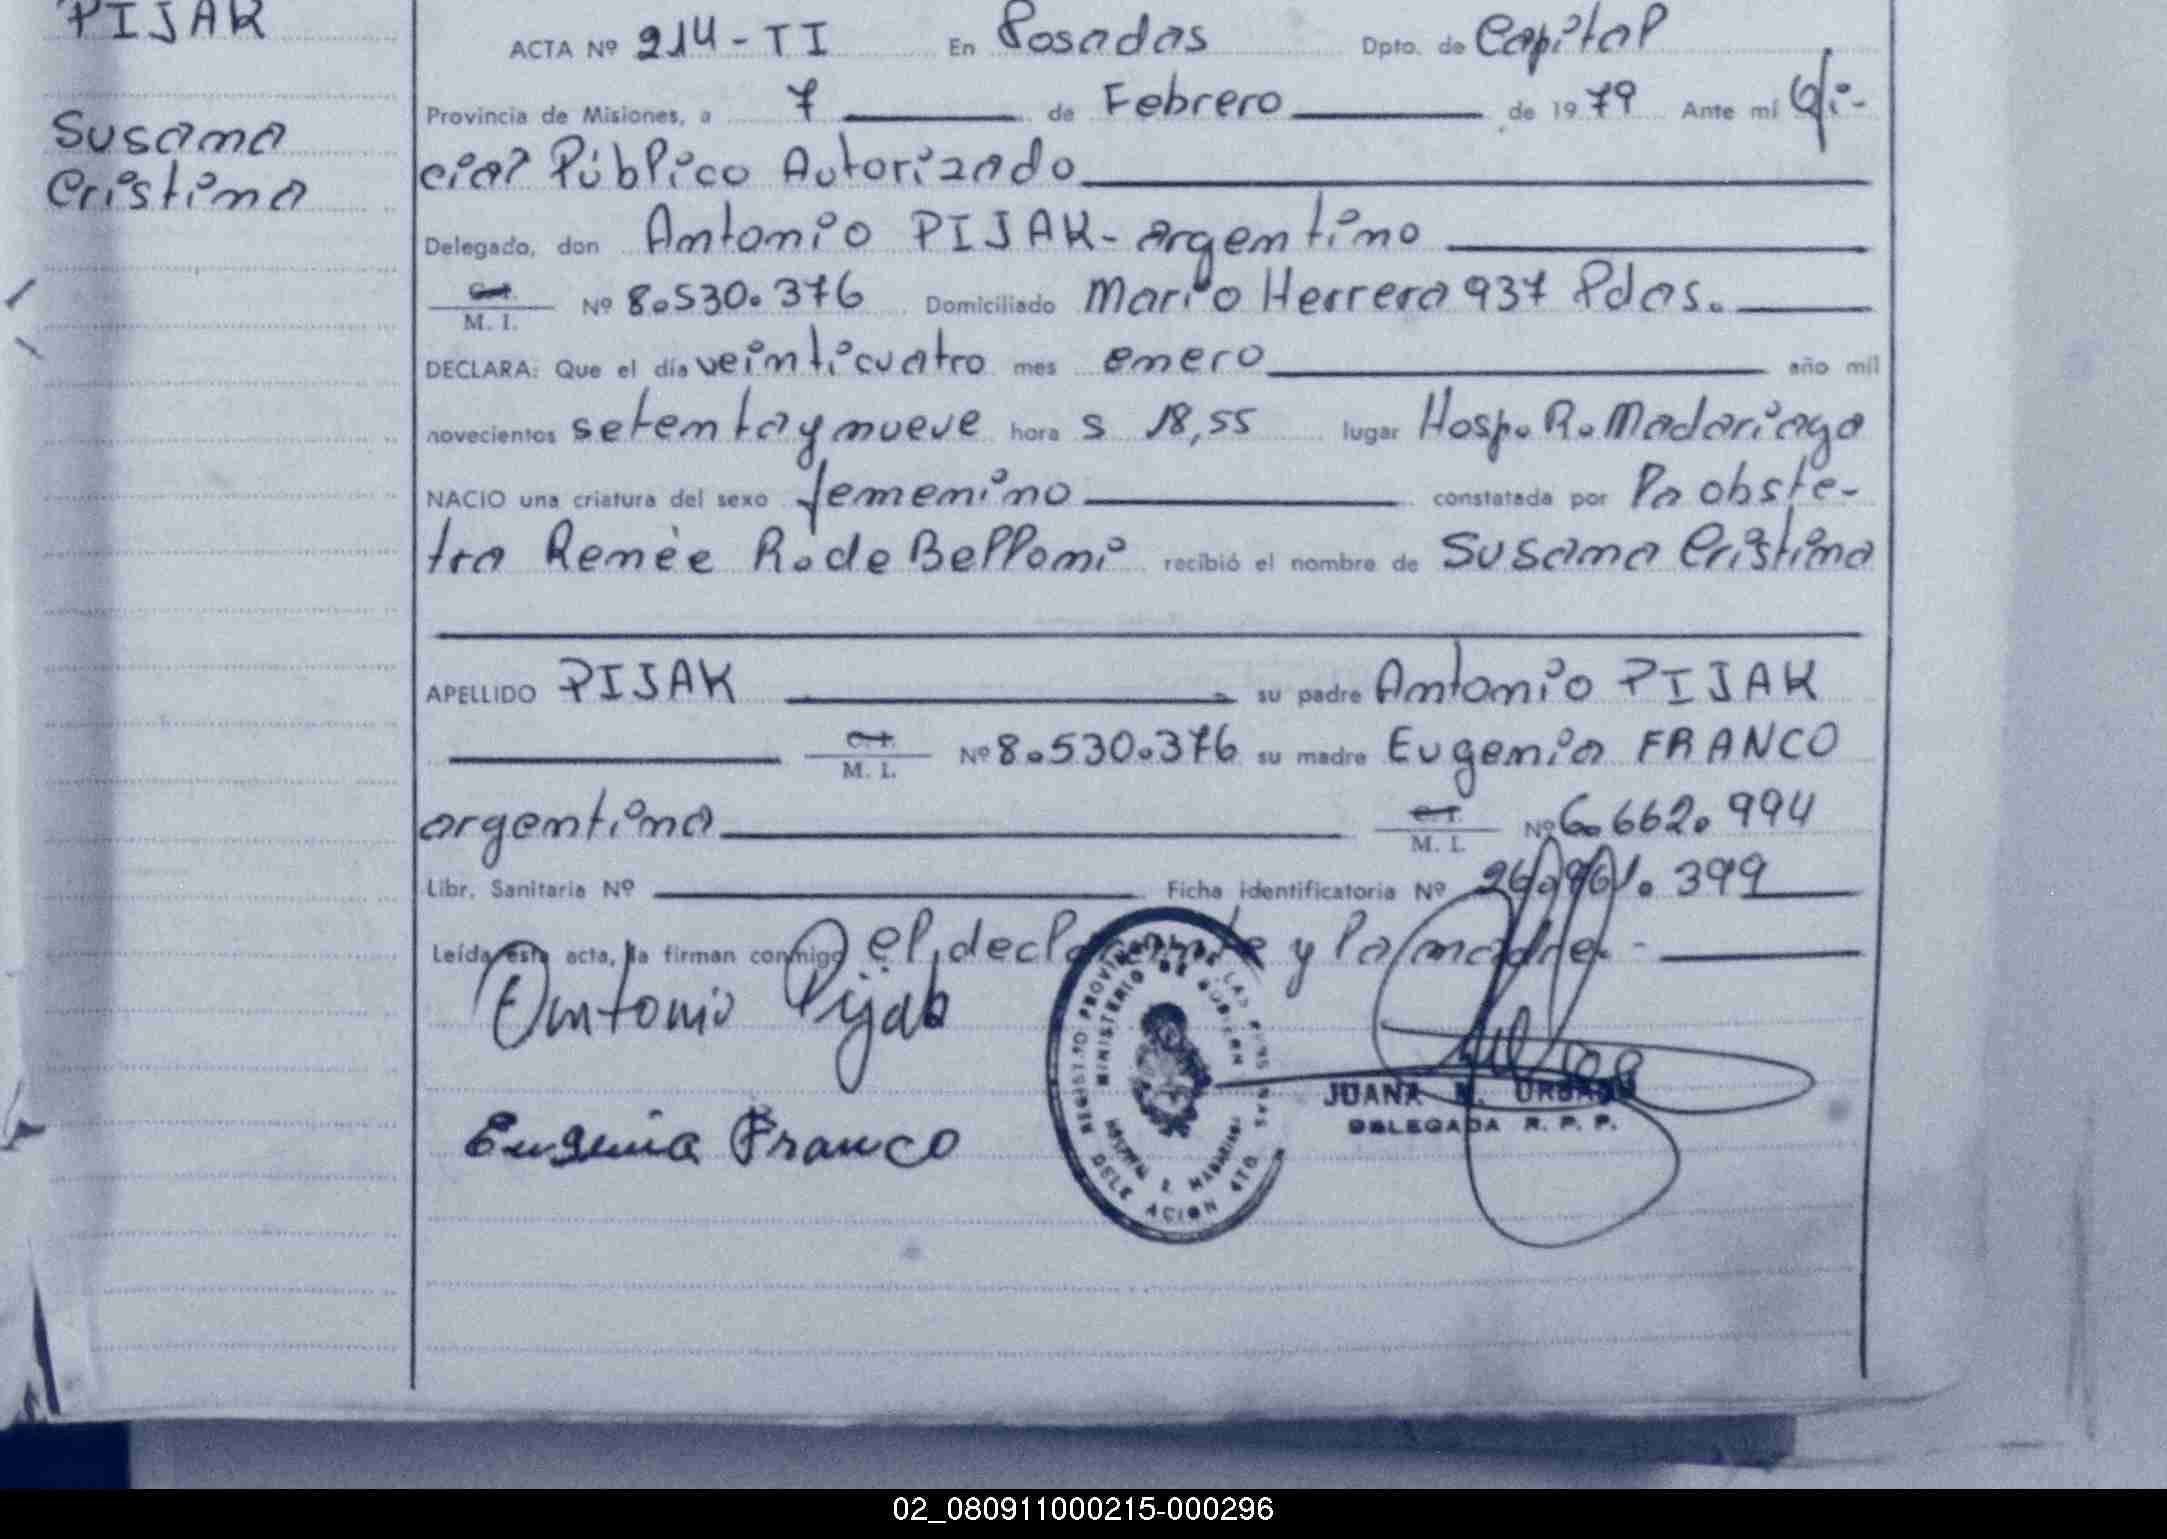 PIJAK
Susana
Cristina
ACTA Nº 214-TI En Posadas Dpto. de Capital
Provincia de Misiones, a 7 de Febrero de 1979 Ante mí Ofi-
cial Público Autorizado
Delegado, don Antonio PIJAK - argentino
C.I.
M. I. Nº 8.530.376 Domiciliado Mario Herrera 937 Pdas.
DECLARA: Que el día veinticuatro mes enero año mil
novecientos setenta y nueve hora s 18,55 lugar Hosp. R. Madariaga
NACIO una criatura del sexo femenino constatada por la obste-
tra Renée R. de Belloni recibió el nombre de Susana Cristina
APELLIDO PIJAK su padre Antonio PIJAK
C.I.
M. I. Nº 8.530.376 su madre Eugenia FRANCO
argentina C.I.
M. I. Nº 6.662.994
Libr. Sanitaria Nº Ficha identificatoria Nº 26.961.399
Leída esta acta, la firman conmigo el declarante y la madre.-
Antonio Pijak
Eugenia Franco
REGISTRO PROVINCIAL DE LAS PERSONAS
MINISTERIO DE GOBIERNO
HOSPITAL R. MADARIAGA
DELEGACION 4TO
JUANA
DELEGADA R. P. P.
02_080911000215-000296